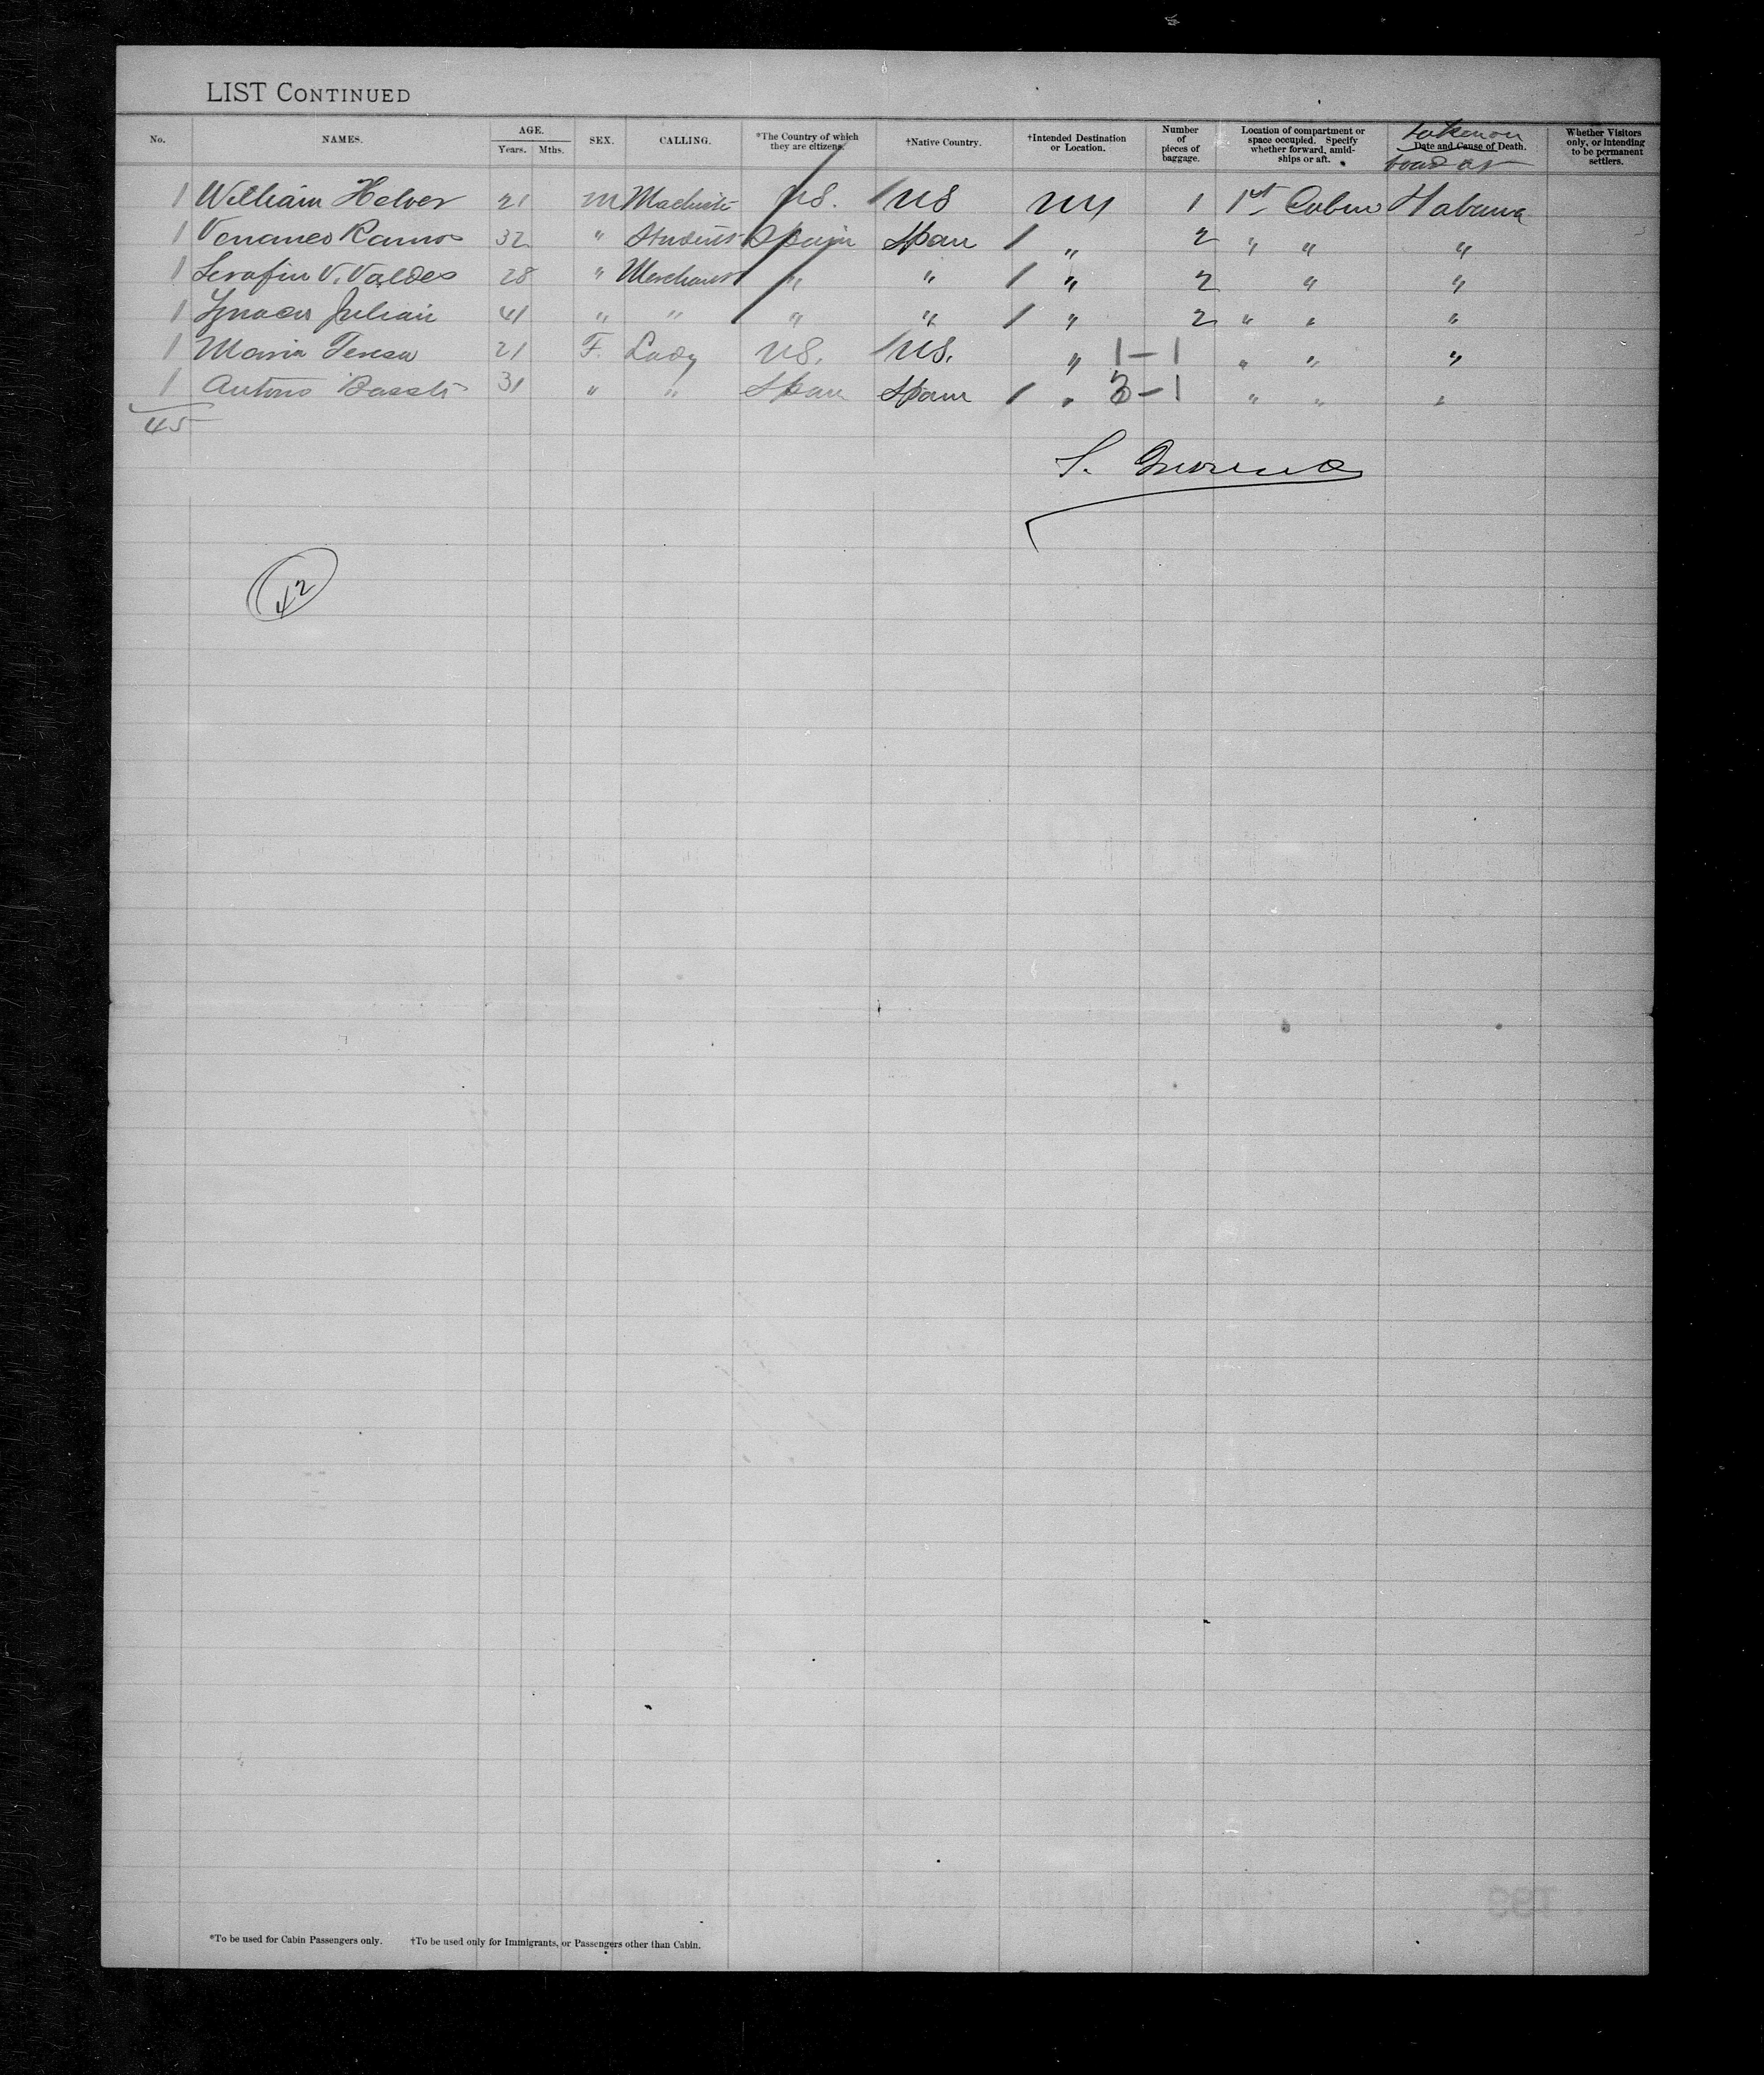 LIST CONTINUED
No. NAMES. AGE. Years. Mths. SEX. CALLING. *The Country of which they are citizens. †Native Country. †Intended Destination or Location. Number of pieces of baggage. Location of compartment or space occupied. Specify whether forward, amidships or aft. Date and Cause of Death. Taken on board at Whether Visitors only, or intending to be permanent settlers.
1 William Helver 21 m Machinist US. / US NY 1 1st Cabin Habana
1 Ramos 32 " Student Spain Spain / " 2 " " "
1 Serafin V. Valdes 28 " Merchant " " / " 2 " "
1 Julian 41 " " " " / " 2 " " "
1 Maria Teresa 21 F. Lady US. / US. " 1-1 " " "
1 Antonio 31 " " Spain Spain / " 3-1 " " "
45
S. Moreno
42
*To be used for Cabin Passengers only. †To be used only for Immigrants, or Passengers other than Cabin.